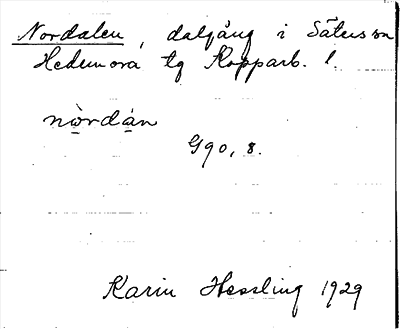 Nordalen, dalgång i Säters sn
Hedemora tg Kopparb. l.
nò̱rda̱n
G90, 8.
Karin Hessling 1929